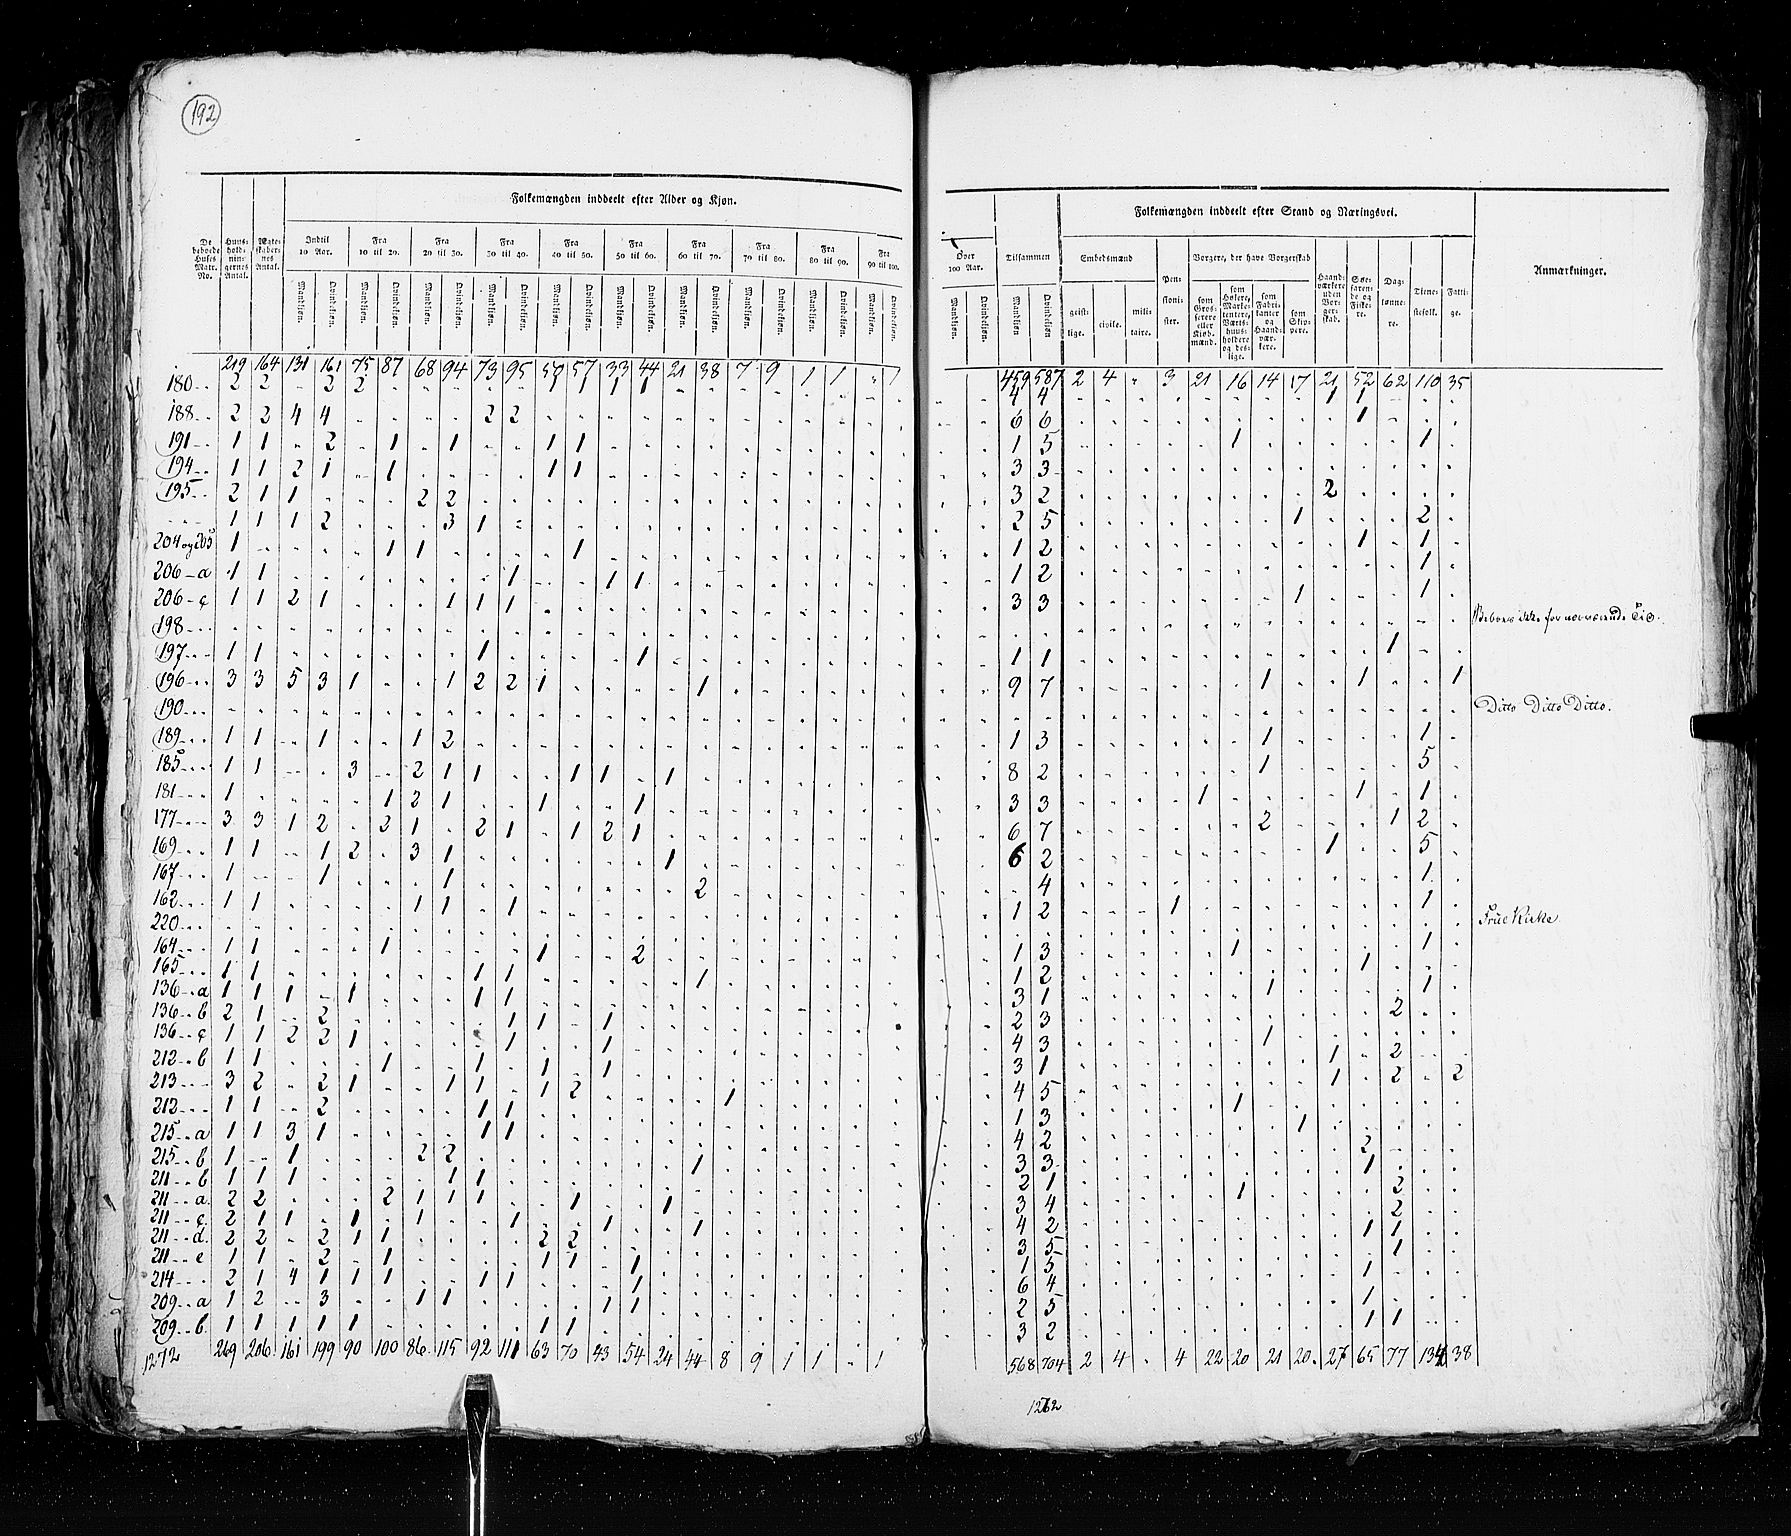 192
Folkemængden inddeelt efter Alder og Kjøn.
De beboede Huses Matr. No.
Huus-hold-nin-gernes Antal.
Ægte-skaber-nes Antal.
Indtil 10 Aar.
Fra 10 til 20.
Fra 20 til 30.
Fra 30 til 40.
Fra 40 til 50.
Fra 50 til 60.
Fra 60 til 70.
Fra 70 til 80.
Fra 80 til 90.
Fra 90 til 100.
Over 100 Aar.
Mandkjøn. Qvindekjøn.
Tilsammen
Mandkjøn Qvindekjøn
Folkemængden inddeelt efter Stand og Næringsvei.
Embedsmænd
geist-lige.
civile.
mili-taire.
Pen-sioni-ster.
Borgere, der have Borgerskab
som Gros-serere eller Kjøb-mænd.
som Høkere, Marke-tentere, Værts-huus-holdere og des-lige.
som Fabri-kanter og Haand-vær-kere.
som Skip-pere.
Haand-værkere uden Bor-ger-skab.
Søe-faren-de og Fiske-re.
Dag-lønne-re.
Tiene-stefolk.
Fatti-ge.
Anmærkninger.
219 164 131 161 75 87 68 94 73 95 59 57 33 44 21 38 7 9 1 1 " 1 459 587 2 4 " 3 21 16 14 17 21 52 62 110 35
180 2 2 2 2 1 1 1 1 4 4 1 1
188 2 2 4 4 2 2 6 6 1
191 1 1 2 1 1 1 1 1 5 1 1
194 1 1 2 1 1 1 1 3 3
195 2 1 1 2 2 3 2 2
1 1 1 2 3 1 2 5 1 2
204 og 205 1 1 1 1 1 2 1 1
206 a 1 1 1 1 1 1 2 1
206 c 1 1 2 1 1 1 1 3 3 1 1
198 Beboes ikke for nærværende Tid.
197 1 1 1 1 1 1 1
196 3 3 5 3 1 1 2 2 1 1 9 7 1 1 1
190 Ditto Ditto Ditto.
189 1 1 1 1 2 1 3 1 1
185 1 1 3 2 1 1 1 1 1 8 2 1 5
181 1 1 2 1 1 1 3 3 1 1 1
177 3 3 1 2 2 1 2 1 1 2 1 6 7 2 1 2
169 1 1 1 2 3 1 1 6 2 1 5
167 1 1 1 2 4 1
162 1 1 1 1 1 1 2 1 1
220 Frue Kirke
164 1 1 1 1 2 1 3 1 1
165 1 1 1 1 1 1 2 1
136 a 1 1 1 1 1 1 3 1 1 1
136 b 2 1 2 1 1 1 2 3 2
136 c 1 1 2 2 1 1 1 4 3 1
212 b 1 1 1 1 1 1 3 1 1 2
213 3 2 2 1 1 1 1 2 1 4 5 1 2 2
212 1 1 2 1 1 1 3 1
215 a 1 1 3 1 1 1 4 2 1
215 b 1 1 2 2 1 3 3 2
211 b 1 1 1 1 1 2 1 1
211 a 2 2 2 1 1 1 1 1 3 4 1 2
211 c 2 1 1 1 1 1 1 1 4 2 2
211 d 2 2 2 1 1 2 2 3 5 1 1
211 e 1 1 2 1 1 1 1 1 5 1
214 2 1 4 1 1 1 1 1 1 6 4 1
209 a 1 2 3 1 1 1 1 2 5 1
209 b 1 1 1 1 1 1 1 3 2 1 1
1272 269 206 161 199 90 100 86 115 92 111 63 70 43 54 24 44 8 9 1 1 " 1 568 704 2 4 " 4 22 20 21 20 27 65 77 134 38
1262